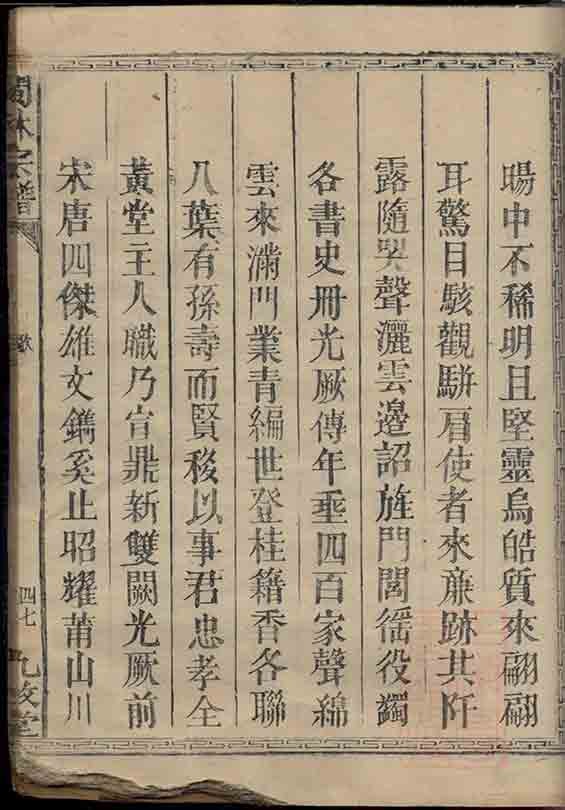 暘中不稀明且堅靈烏皓質來翩翩
耳驚目駭觀駢肩使者來廉跡其阡
露隨哭聲灑雲邉詔旌門閭徭役蠲
各書史冊光厥傳年垂四百家聲綿
雲來滿門業青編世登桂籍香各聯
八葉有孫壽而賢移以事君忠孝全
黃堂主人職乃宣鼎新雙闕光厥前
宋唐四傑雄文鐫奚止昭耀莆山川
林宗譜
歌
四七
九牧堂